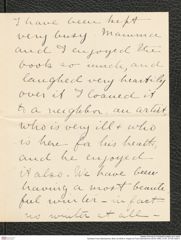 I have been kept
very busy. Mamma
and I enjoyed the
book so much, and
laughed very heartily
over it I loaned it
to a neighbor, an artist
who is very ill & who
is here for his health,
and he enjoyed
it also. We have been
having a most beauti
ful winter - in fact
no winter at all -